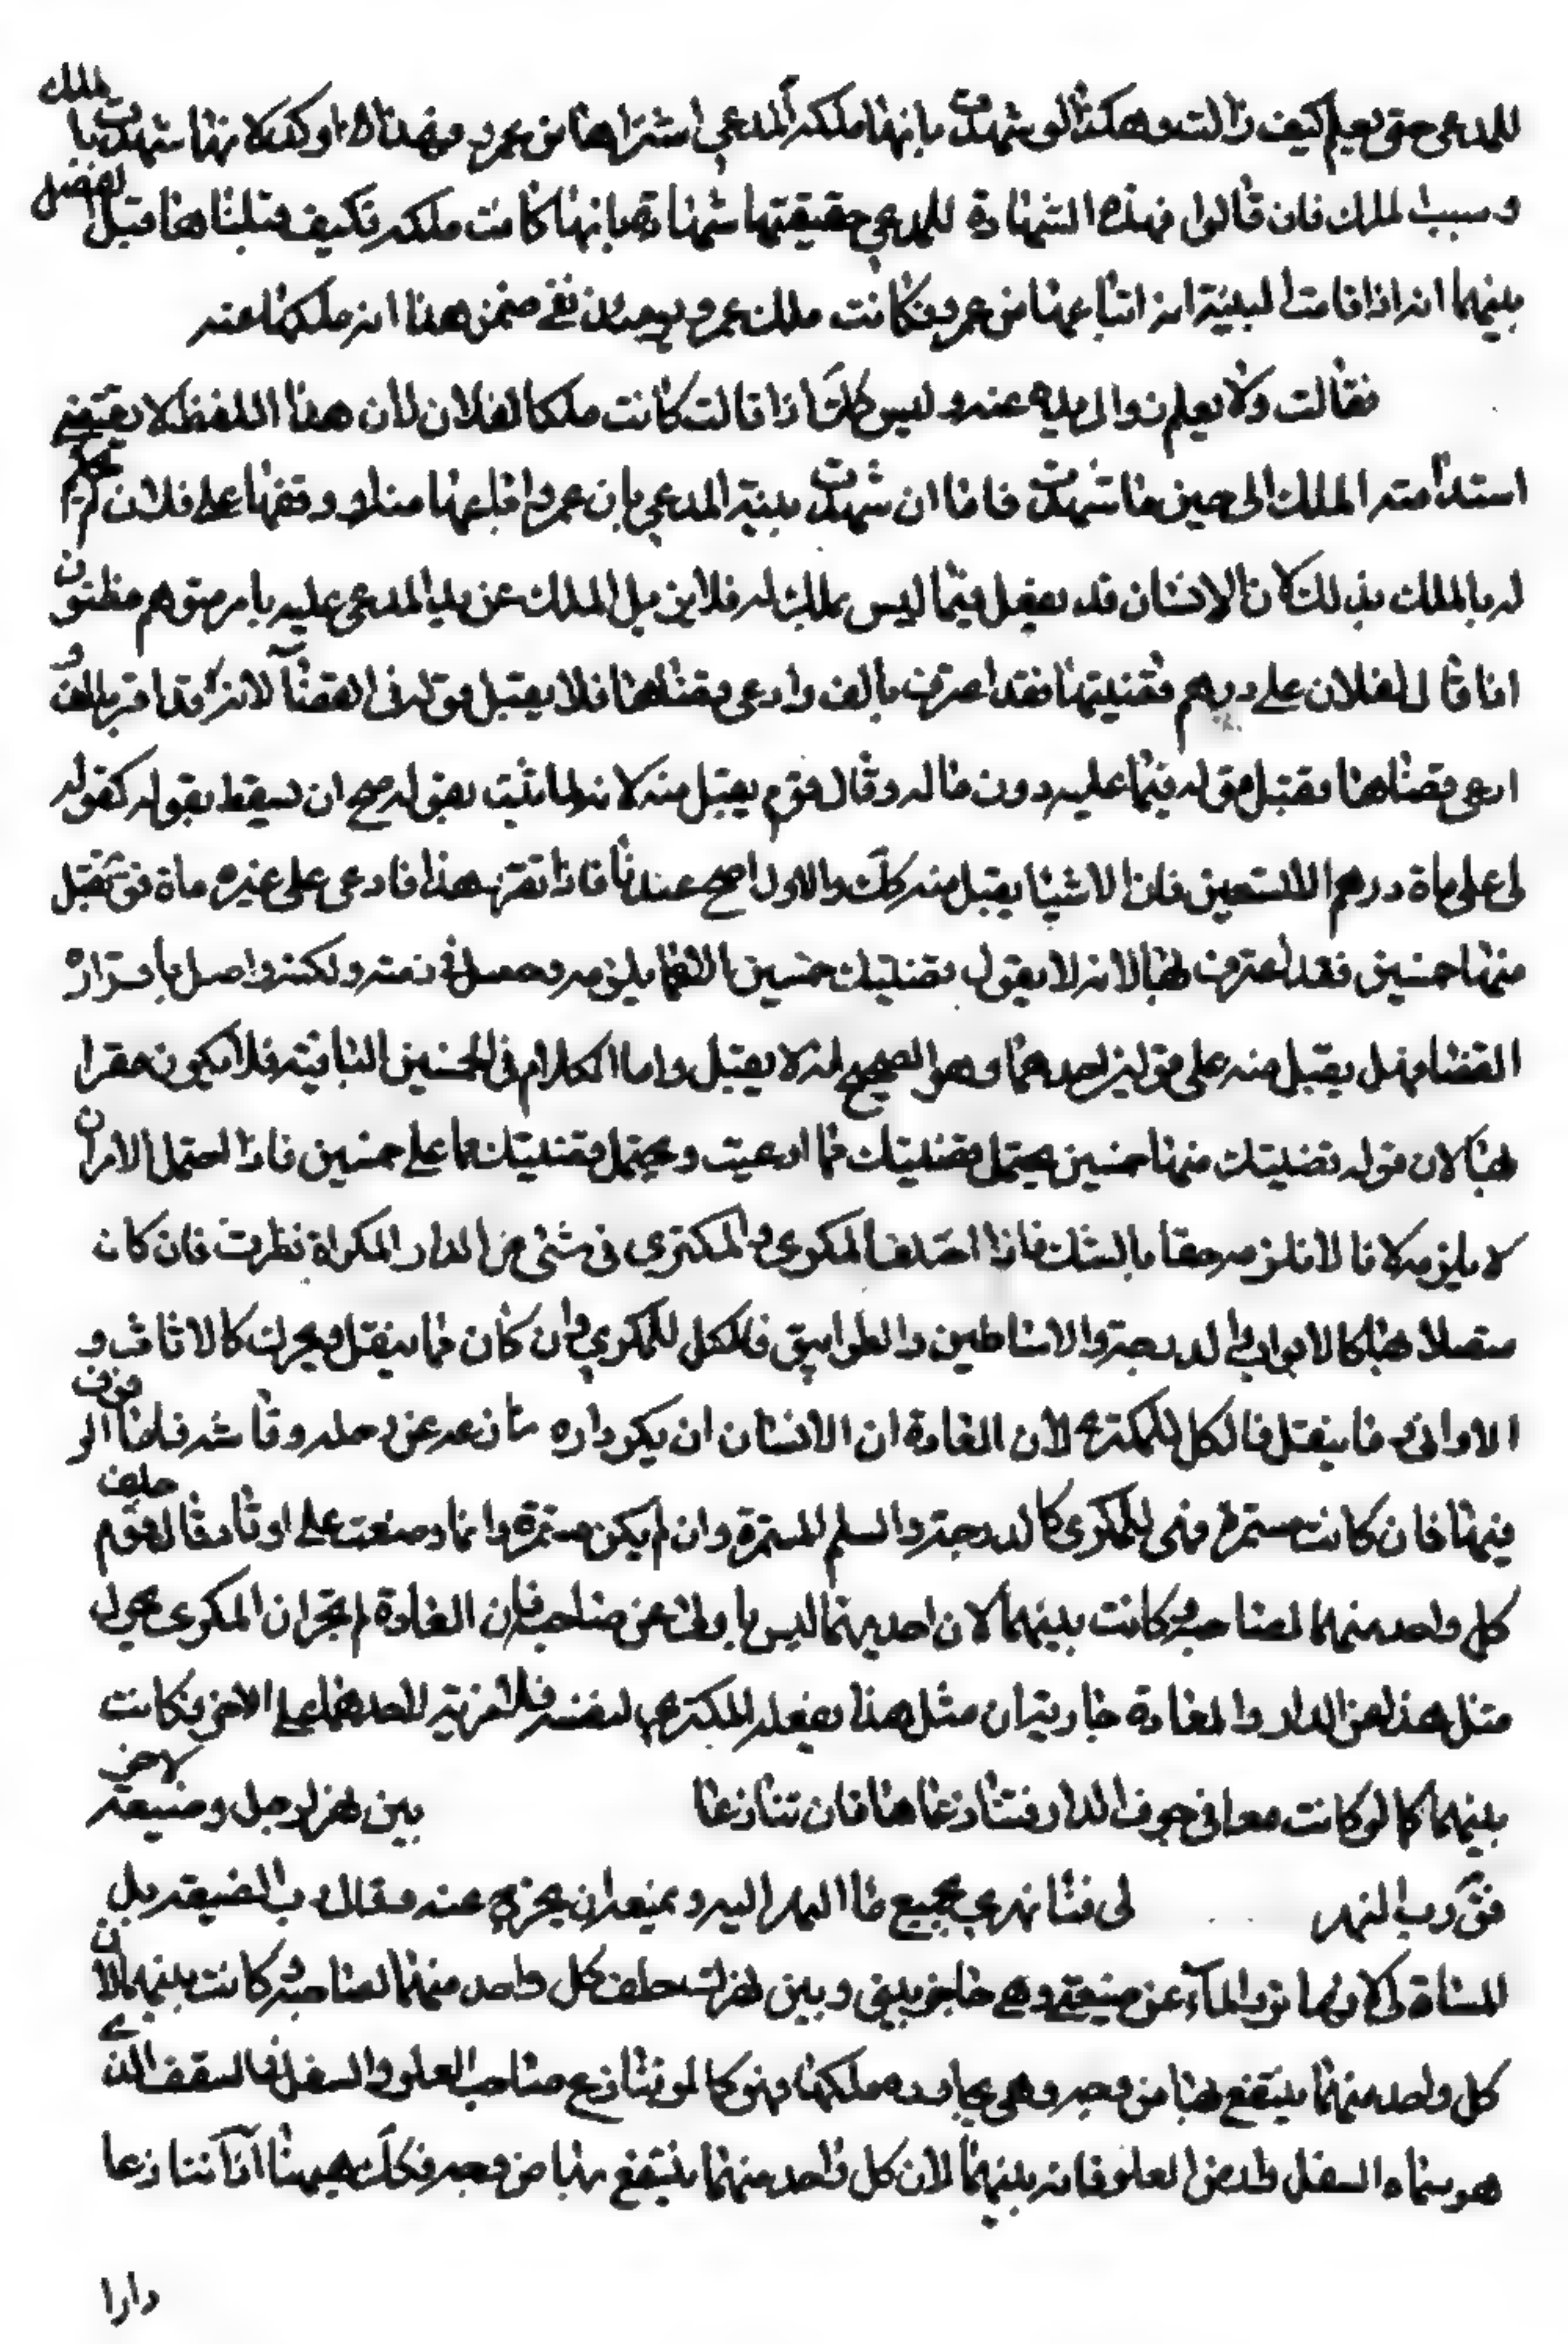 للمدعى حتى يعلم كيف زالت وهكذا لو شهدت بانها ملكه المدعي اشتراها من عمرو فهذا اوكد لانها شهدت بالملك
و سبب الملك فان قالوا فهذه الشهادة للمدعي حقيقتها شهادة بانها كانت ملكه فكيف قبلناها قيل الفصل
بينهما انه اذا قامت البينة انه ابتاعها من عمرو فكانت ملك عمرو ففي ضمن هذا انه ملكها عنه
فقالت ولا يعلم زوال يده عنه وليس كك اذا قالت كانت ملكا لفلان لان هذا اللفظ لا يقتضي
استدامته الملك الى حين ما شهدت فاما ان شهدت بينة المدعي بان عمروا باعها منه او وقفها على فلان لم يحكم
له بالملك بذلك لان الانسان قد يفعل فيما ليس بملك له فلا يزيل الملك عن يد المدعى عليه بامر متوهم مظنون
اذا قال لفلان على درهم فقضيتها فقد اعترف بالف وادعى قضاها فلا يقبل قوله فى القضآ لانه قد اقر بالف و
ادعى قضاها فقبل قوله فيما عليه دون ما له وقال قوم يقبل منه لانه لما ثبت بقوله صح ان يسقط بقوله كقوله
له على ماة درهم الا تسعين فان الاستثنا يقبل منه كك والاول اصح عندنا فاذا تقرر هذا فادعى على غيره ماة فق قبل
منها خمسين فقد اعترف بها لانه لا يقول قضيتك خمسين الا فيما يلزمه وحصل في ذمته ولكنه واصل باقراره
القضا فهل يقبل منه على قولين احدهما وهو الصحيح انه لا يقبل واما الكلام فى الخمسين الثانية فلا يكون مقرا
بها لان قوله قضيتك منها خمسين يحتمل قضيتك مما ادعيت و يحتمل قضيتك مما على خمسين فاذا احتمل الامران
لا يلزمه لانا لا نلزمه حقا بالشك فاذا اختلف المكرى و المكترى فى شئ من الدار المكراة نظرت فان كان
متصلا بها كالابواب و الدرجة والاساطين والطوابيق فالكل للمكري وان كان مما ينقل ويحول كالاثاث و
الاوانى و ما ينقل فالكل للمكترى لان العادة ان الانسان ان يكرى داره فارغة عن رحله وقماشه فاما الرفوف
فيها فان كانت مستمرة فهى للمكرى كالدرجة والسلم المستمرة وان لم يكن مستمرة وانما وضعت على اوتاد فقال قوم حلف
كل واحد منهما لصاحبه وكانت بينهما لان احديهما ليس باولى من صاحبه فان العادة لم تجر ان المكرى يحول
مثل هذا من الدار والعادة جارية ان مثل هذا يفعله المكترى لنفسه فلا مزية لاحدهما على الاخر فكانت
بينهما كما لو كانت معا فى جوف الدار فتنازعاها فان تنازعا بين نهر لرجل و ضيعة لاخر
فق رب النهر لى فانها نهرى تجمع ما الهر اليه و تمنعه ان يخرج عنه و قال رب الضيعة بل
المسناة لى لانها ترد المآء عن ضيعتى وهى حاجز بينى و بين نهرك حلف كل واحد منهما لصاحبه وكانت بينهما لان
كل واحد منهما ينتفع بها من وجه وهى مجاورة ملكها فهو كما لو تنازع صاحب العلو والسفل فالسقف الذي
هو سماء السفل وارض العلو فانه بينهما لان كل واحد منهما ينتفع بها من وجه فكك هيهنا اذا تنازعا
دارا